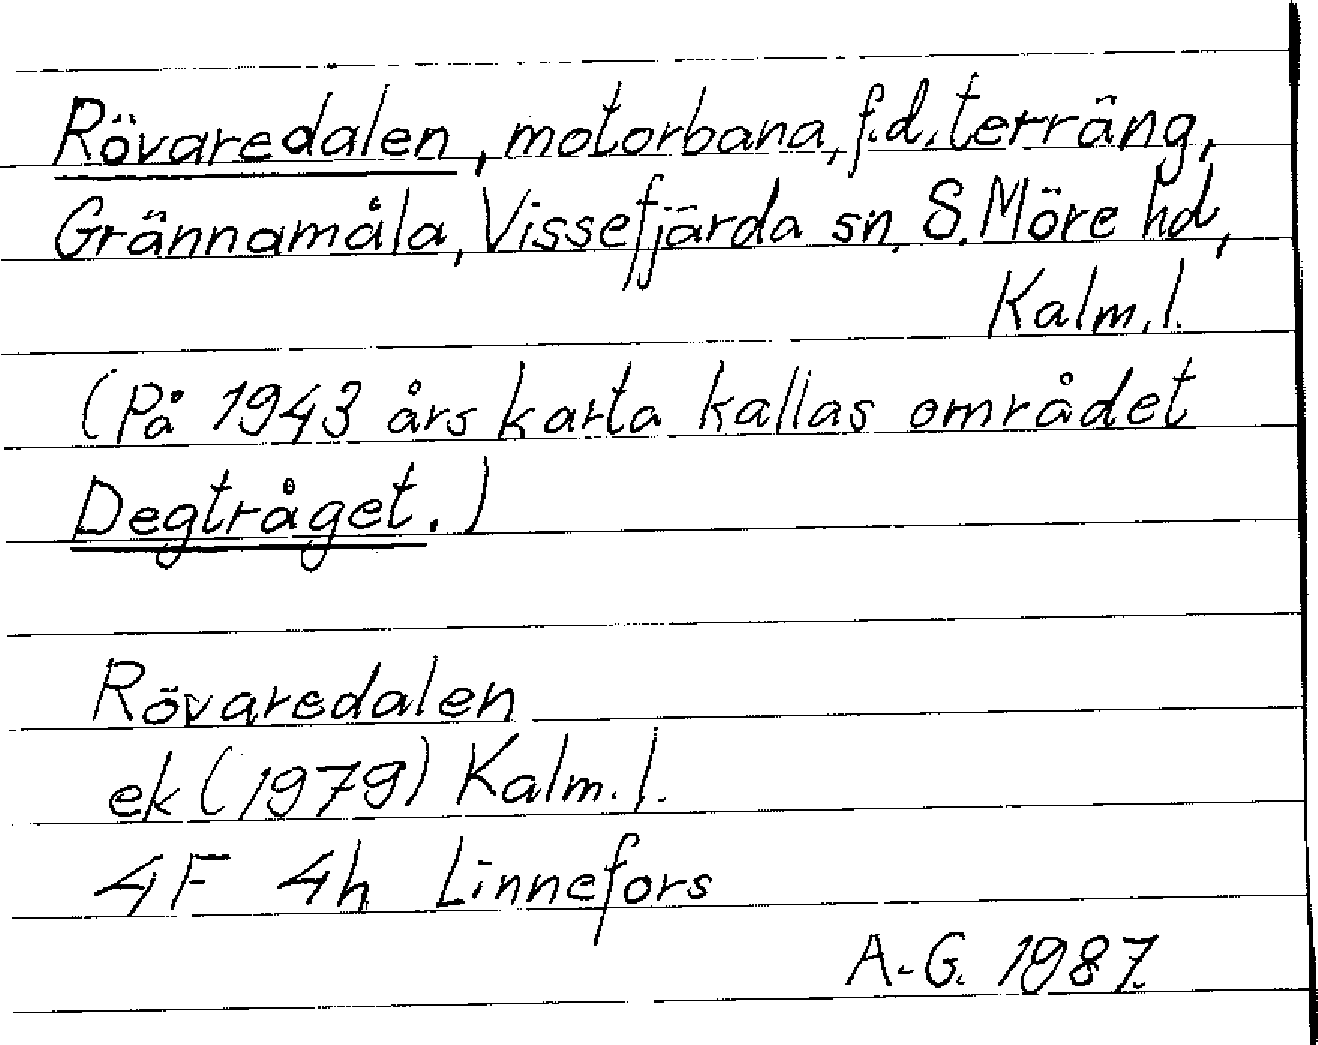 Rövaredalen, motorbana, f.d. terräng,
Grännamåla, Vissefjärda sn, S. Möre hd,
Kalm. l.
(På 1943 års karta kallas området
Degtråget.)
Rövaredalen
ek (1979) Kalm. l.
4F 4h Linnefors
A.-G. 1987.